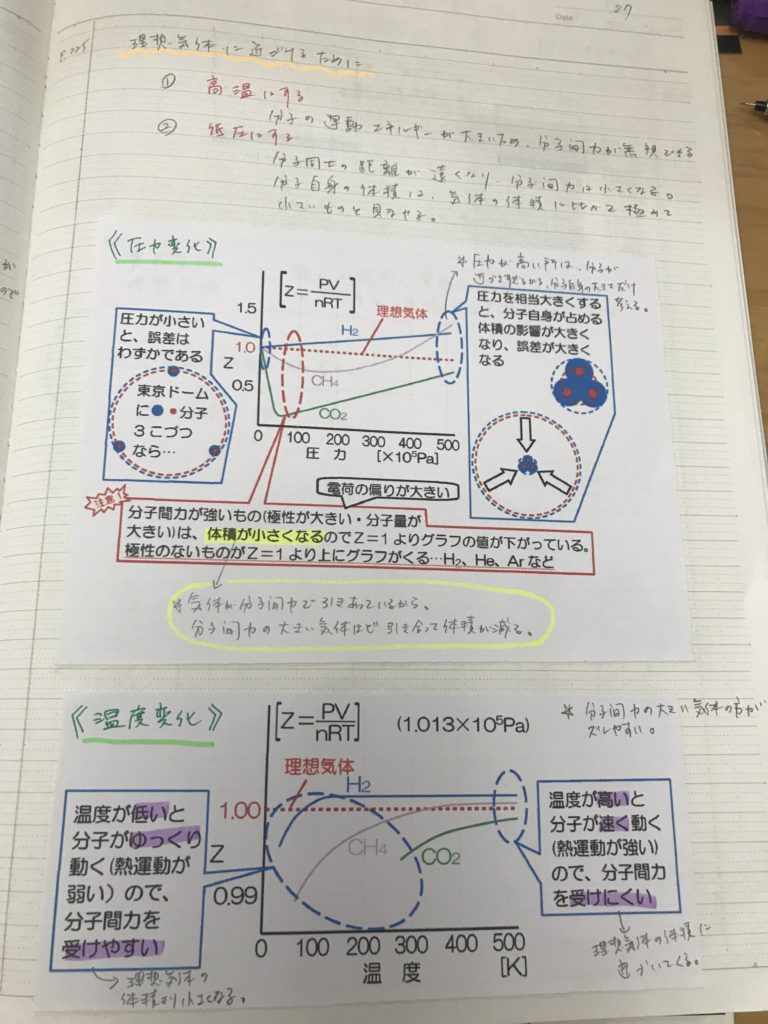 Date
27
P.225
理想気体に近づけるために
① 高温にする
分子の運動エネルギーが大きいため、分子間力が無視できる
② 低圧にする
分子同士の距離が遠くなり、分子間力は小さくなる。
分子自身の体積は、気体の体積に比べて極めて
小さいものと見なせる。
《圧力変化》
※圧力が高い所は、分子が
分子自身の大きさだけ
考える。
[Z=PV/nRT]
圧力が小さい
と、誤差は
わずかである
東京ドーム
に●●分子
3こづつ
なら…
1.5
1.0
Z
0.5
H₂
理想気体
CH₄
CO₂
0 100 200 300 400 500
圧力 [×10⁵Pa]
圧力を相当大きくする
と、分子自身が占める
体積の影響が大きく
なり、誤差が大きく
なる
電荷の偏りが大きい
注意!
分子間力が強いもの(極性が大きい・分子量が
大きい)は、体積が小さくなるのでZ=1よりグラフの値が下がっている。
極性のないものがZ=1より上にグラフがくる…H₂、He、Arなど
※気体が分子間力で引きあっているから。
分子間力の大きい気体ほど引き合って体積が減る。
《温度変化》
[Z=PV/nRT] (1.013×10⁵Pa)
※分子間力の大きい気体の方が
ズレやすい。
温度が低いと
分子がゆっくり
動く(熱運動が
弱い)ので、
分子間力を
受けやすい
→理想気体の
体積より小さくなる。
理想気体
H₂
1.00
CH₄
CO₂
Z
0.99
0 100 200 300 400 500
温度 [K]
温度が高いと
分子が速く動く
(熱運動が強い)
ので、分子間力
を受けにくい
理想気体の体積に
近づいてくる。